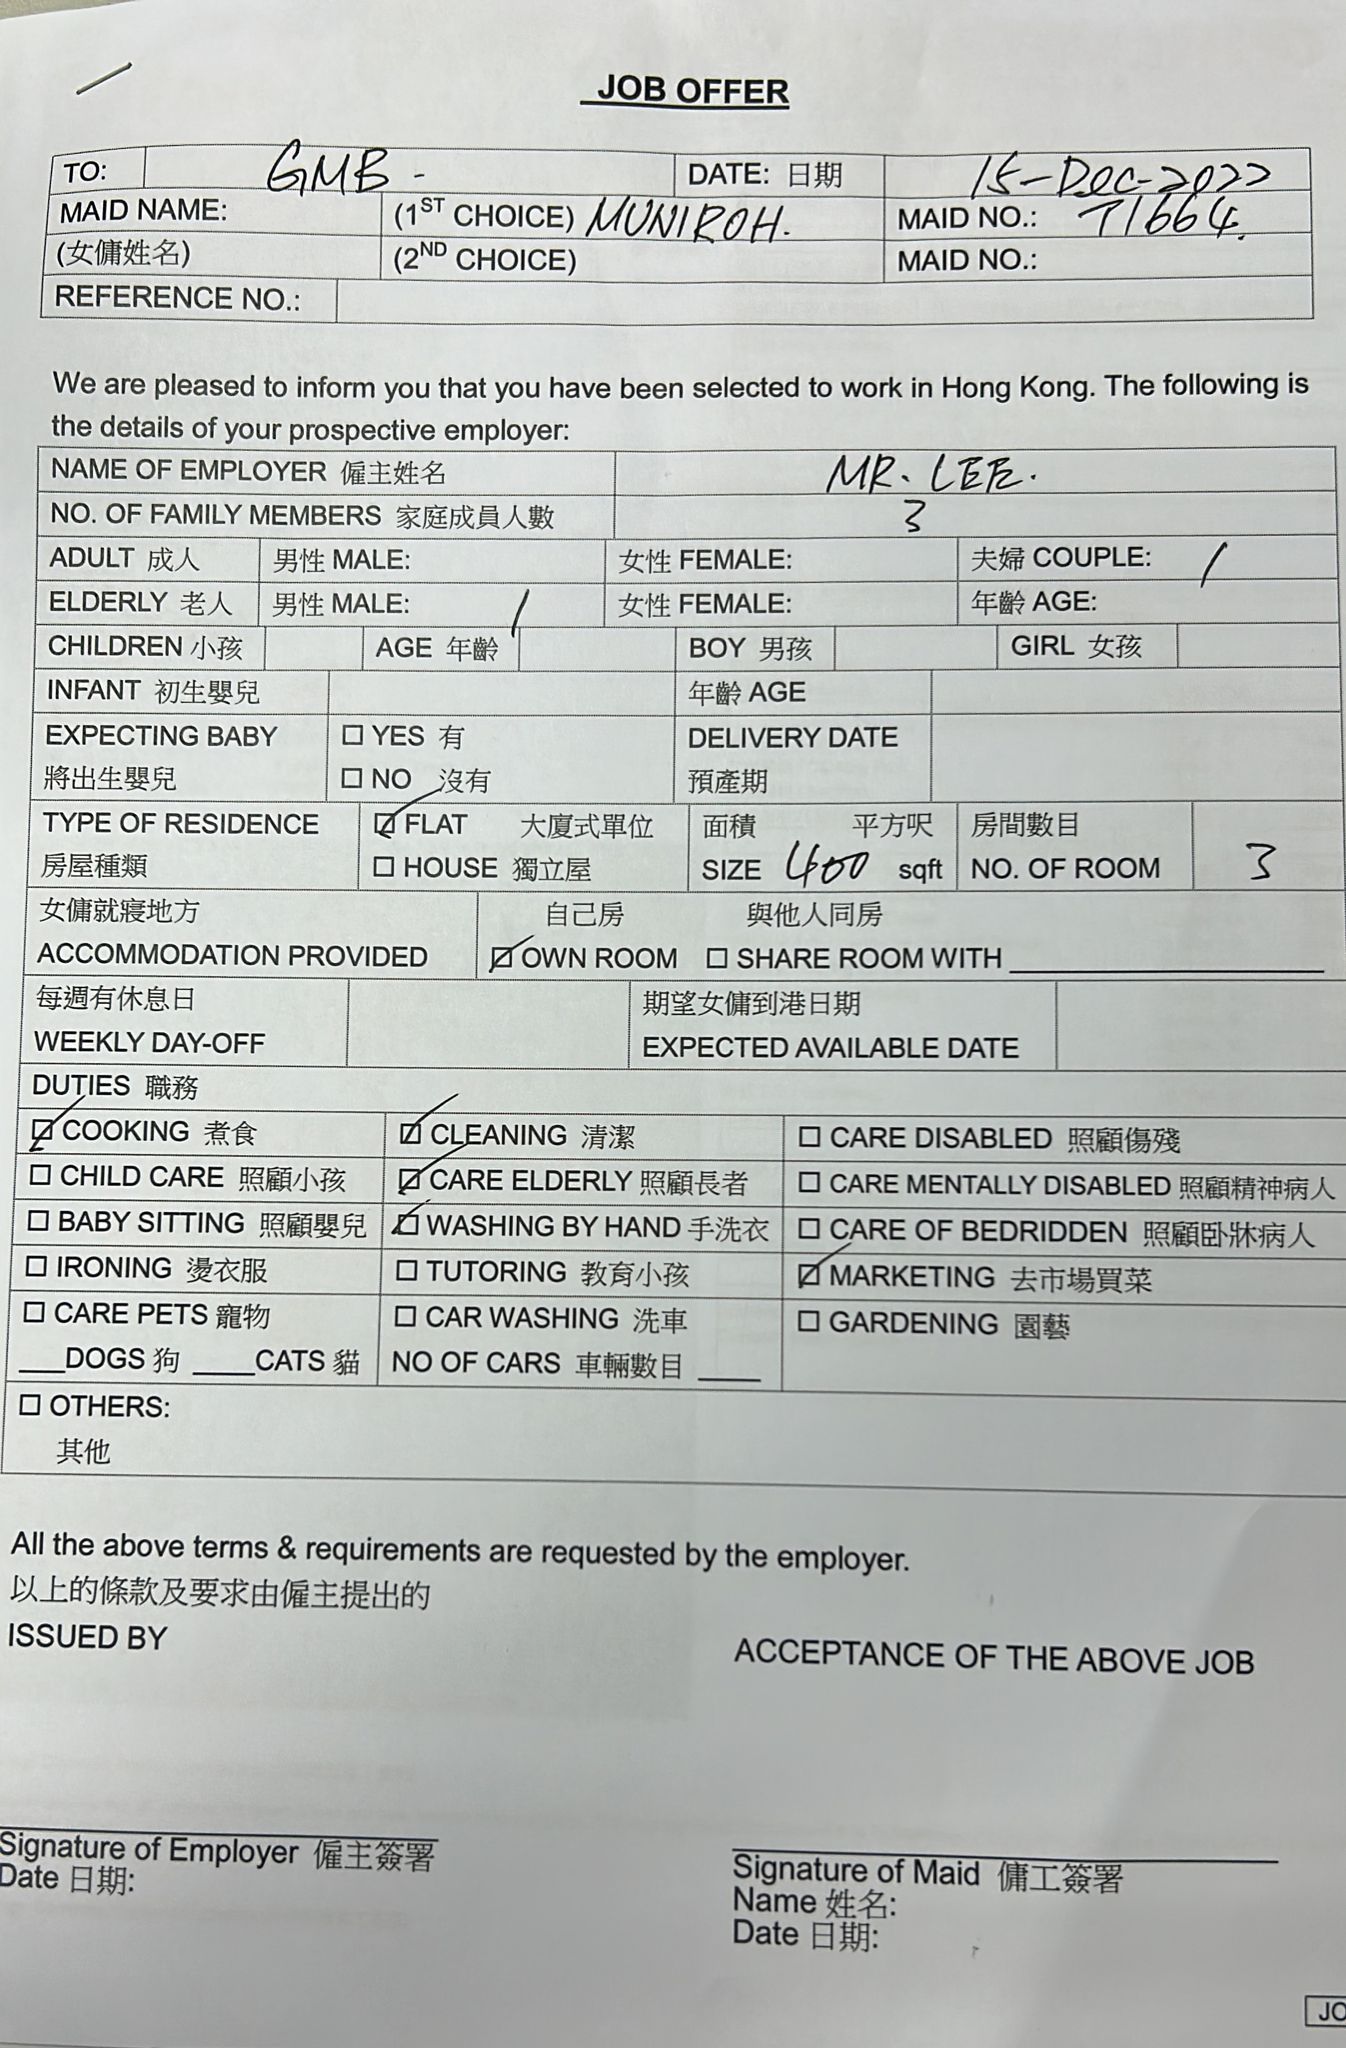 JOB OFFER
TO: GMB - DATE: 日期 15-Dec-2022
MAID NAME: (1ST CHOICE) MUNIROH. MAID NO.: T1664.
(女傭姓名) (2ND CHOICE) MAID NO.:
REFERENCE NO.:
We are pleased to inform you that you have been selected to work in Hong Kong. The following is
the details of your prospective employer:
NAME OF EMPLOYER 僱主姓名 MR. LEE.
NO. OF FAMILY MEMBERS 家庭成員人數 3
ADULT 成人 男性 MALE: 女性 FEMALE: 夫婦 COUPLE: /
ELDERLY 老人 男性 MALE: / 女性 FEMALE: 年齡 AGE:
CHILDREN 小孩 AGE 年齡 BOY 男孩 GIRL 女孩
INFANT 初生嬰兒 年齡 AGE
EXPECTING BABY ☐ YES 有 DELIVERY DATE
將出生嬰兒 ☐ NO 沒有 預產期
TYPE OF RESIDENCE ☑ FLAT 大廈式單位 面積 平方呎 房間數目
房屋種類 ☐ HOUSE 獨立屋 SIZE 400 sqft NO. OF ROOM 3
女傭就寢地方 自己房 與他人同房
ACCOMMODATION PROVIDED ☑ OWN ROOM ☐ SHARE ROOM WITH
每週有休息日 期望女傭到港日期
WEEKLY DAY-OFF EXPECTED AVAILABLE DATE
DUTIES 職務
☑ COOKING 煮食 ☑ CLEANING 清潔 ☐ CARE DISABLED 照顧傷殘
☐ CHILD CARE 照顧小孩 ☑ CARE ELDERLY 照顧長者 ☐ CARE MENTALLY DISABLED 照顧精神病人
☐ BABY SITTING 照顧嬰兒 ☑ WASHING BY HAND 手洗衣 ☐ CARE OF BEDRIDDEN 照顧卧牀病人
☐ IRONING 燙衣服 ☐ TUTORING 教育小孩 ☑ MARKETING 去市場買菜
☐ CARE PETS 寵物 ☐ CAR WASHING 洗車 ☐ GARDENING 園藝
___DOGS 狗 ____CATS 貓 NO OF CARS 車輛數目 ____
☐ OTHERS:
其他
All the above terms & requirements are requested by the employer.
以上的條款及要求由僱主提出的
ISSUED BY
ACCEPTANCE OF THE ABOVE JOB
Signature of Employer 僱主簽署
Date 日期:
Signature of Maid 傭工簽署
Name 姓名:
Date 日期:
JO